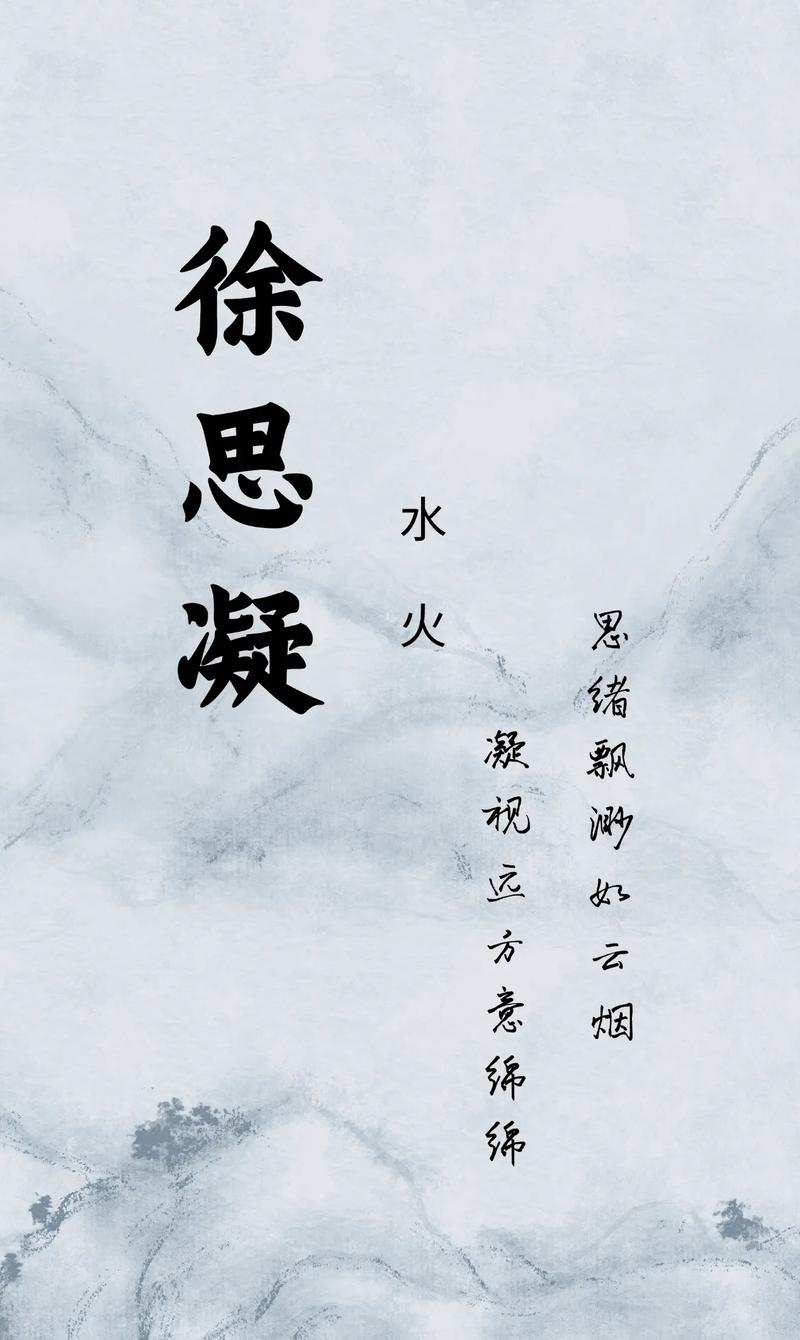 徐思凝
水火
思绪飘渺如云烟
凝视远方意绵绵